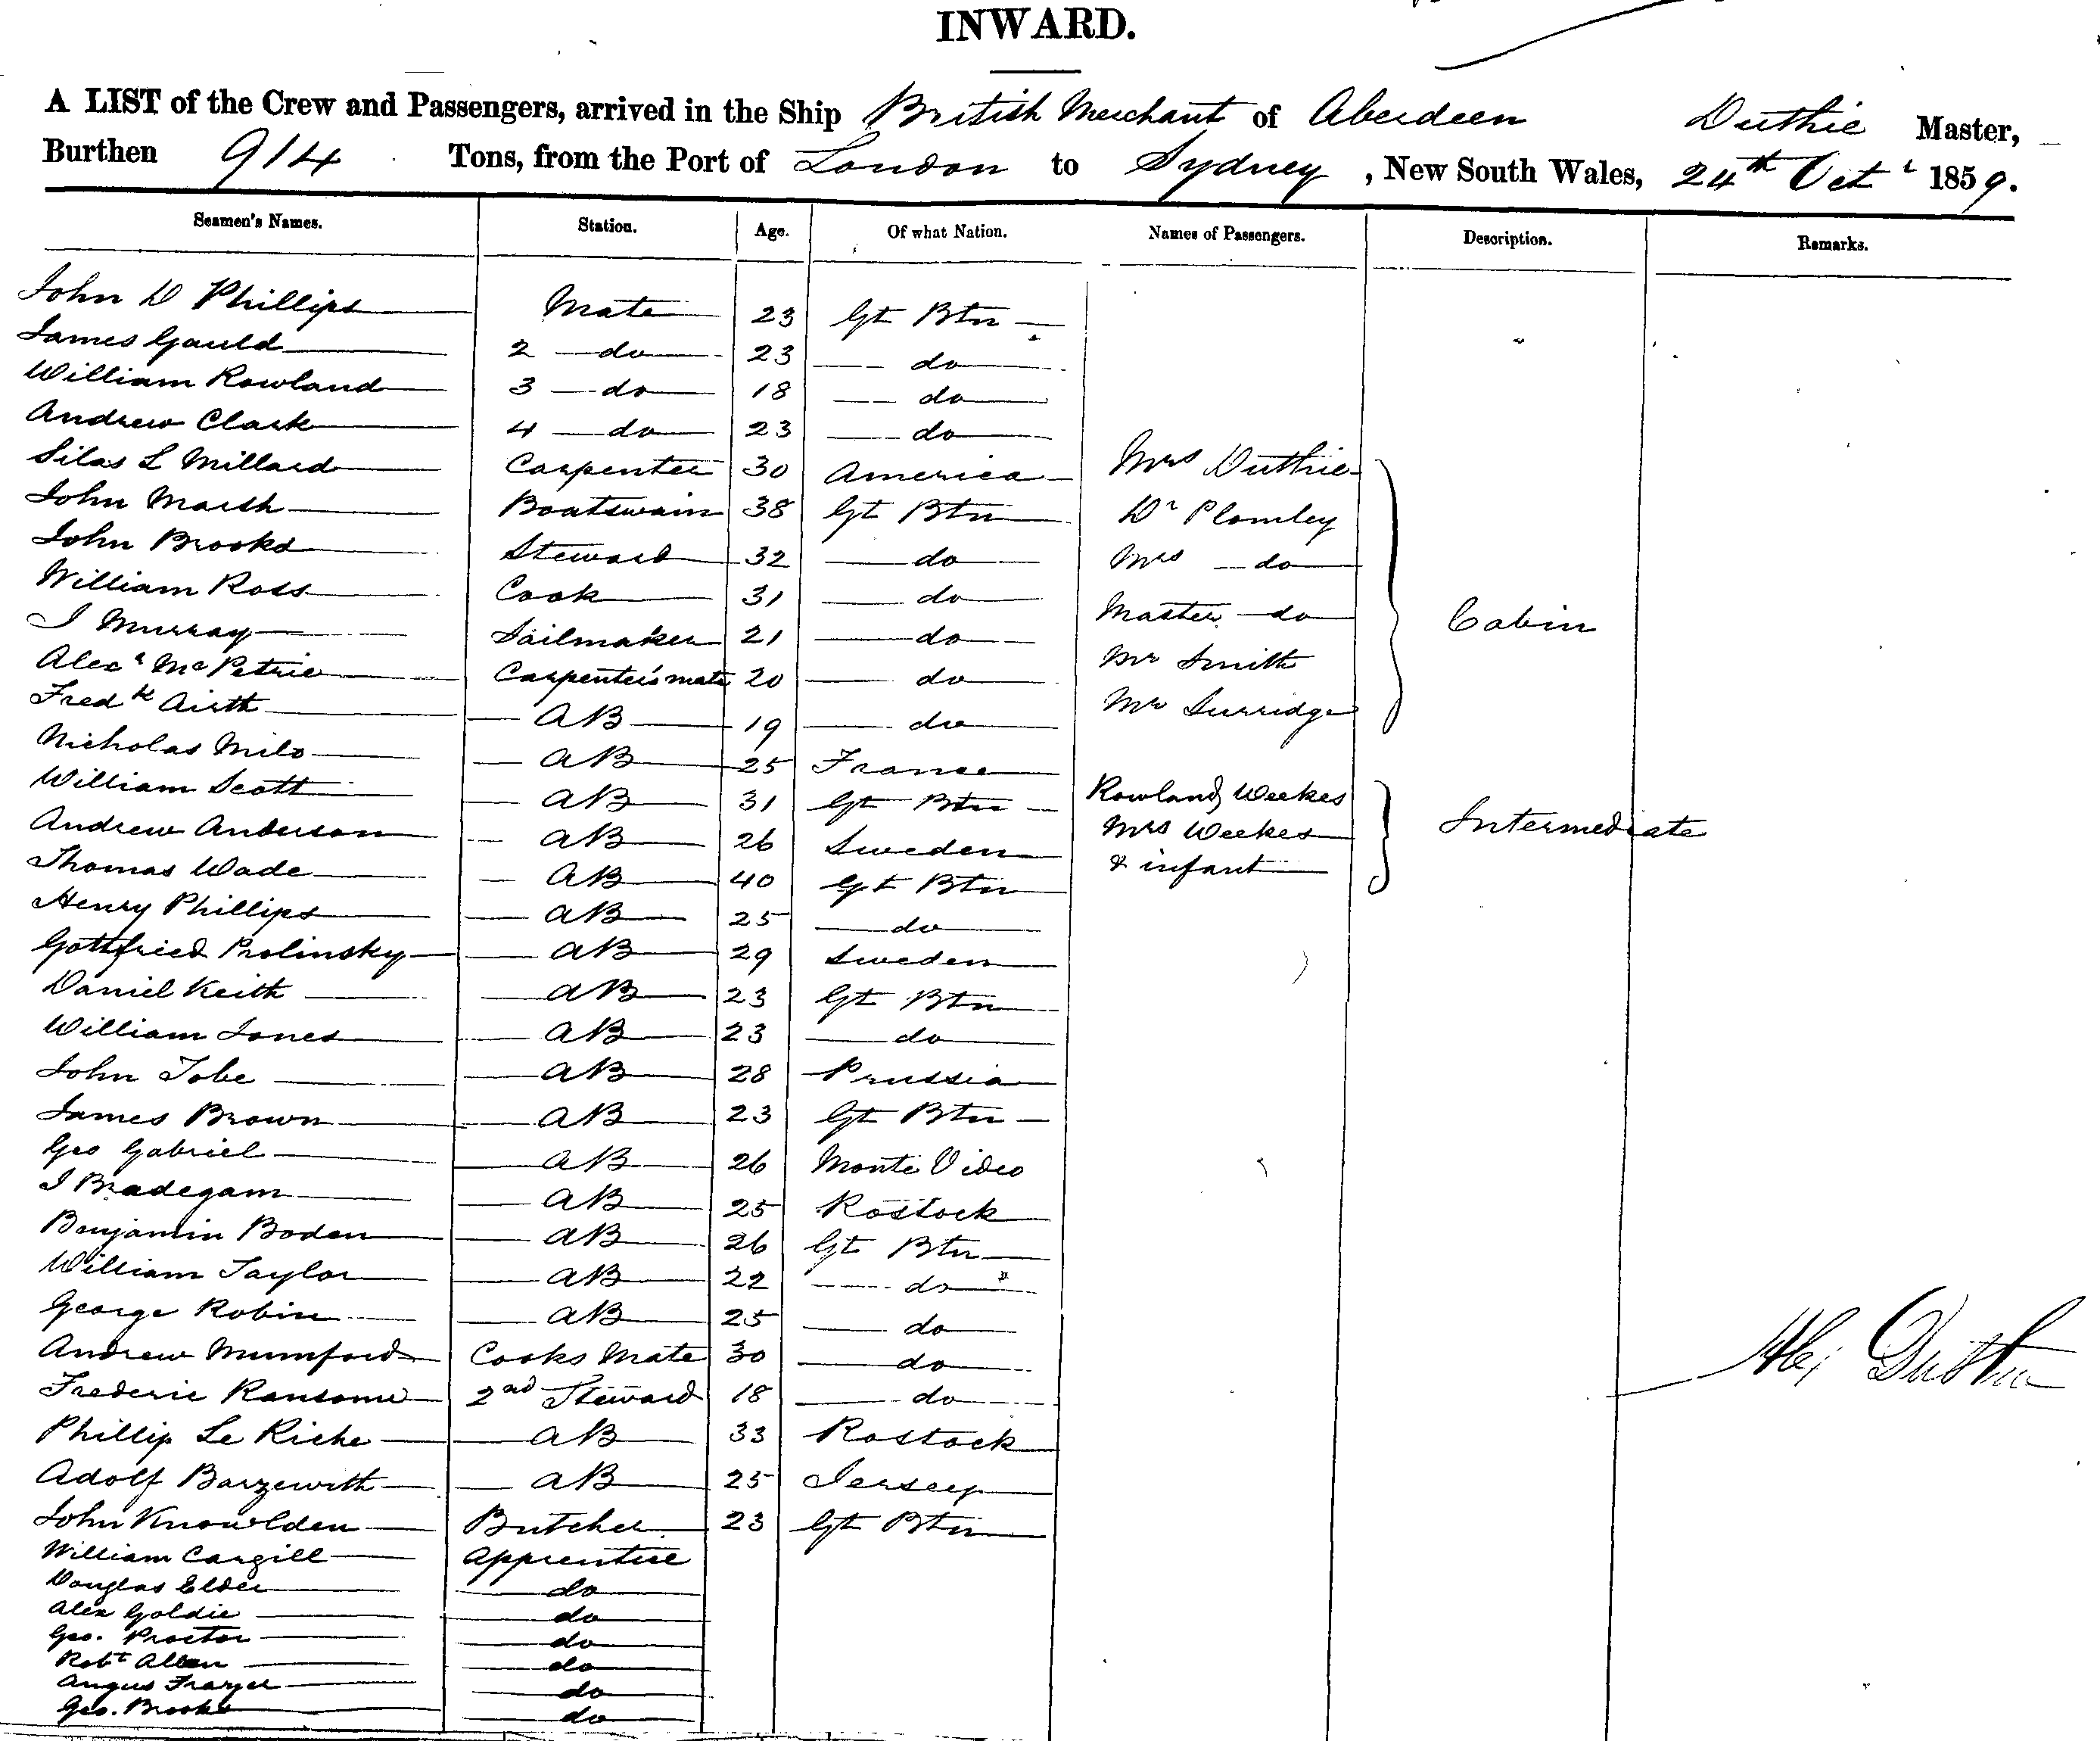 INWARD.
A LIST of the Crew and Passengers, arrived in the Ship British Merchant of Aberdeen Duthie Master,
Burthen 914 Tons, from the Port of London to Sydney, New South Wales, 24th Oct 1859.
Seamen's Names. Station. Age. Of what Nation. Names of Passengers. Description. Remarks.
John D Phillips Mate 23 Gt Btn
James Gauld 2 do 23 do
William Rowland 3 do 18 do
Andrew Clark 4 do 23 do
Silas L Millard Carpenter 30 America Mrs Duthie
John Marsh Boatswain 38 Gt Btn Dr Plomley
John Brooks Steward 32 do Mrs do
William Ross Cook 31 do Master do Cabin
J Murray Sailmaker 21 do Mr Smith
Alexr McPetrie Carpenter's mate 20 do Mr Surridge
Fredk Airth AB 19 do
Nicholas Milo AB 25 France
William Scott AB 31 Gt Btn Rowland Weekes
Andrew Anderson AB 26 Sweden Mrs Weekes Intermediate
Thomas Wade AB 40 Gt Btn & infant
Henry Phillips AB 25 do
Gottfried Prolinsky AB 29 Sweden
Daniel Keith AB 23 Gt Btn
William Jones AB 23 do
John Tobe AB 28 Prussia
James Brown AB 23 Gt Btn
Geo Gabriel AB 26 Monte Video
J Bradegam AB 25 Rostock
Benjamin Boden AB 26 Gt Btn
William Taylor AB 22 do
George Robin AB 25 do
Andrew Mumford Cooks Mate 30 do
Frederic Ransome 2nd Steward 18 do
Phillip Le Riche AB 33 Rostock
Adolf Barzewith AB 25 Jersey
John Knowlden Butcher 23 Gt Btn
William Cargill Apprentice
Douglas Elder do
Alex Goldie do
Geo. Proctor do
Robt Allan do
Angus Frazer do
Geo. Brooks do
Duthie